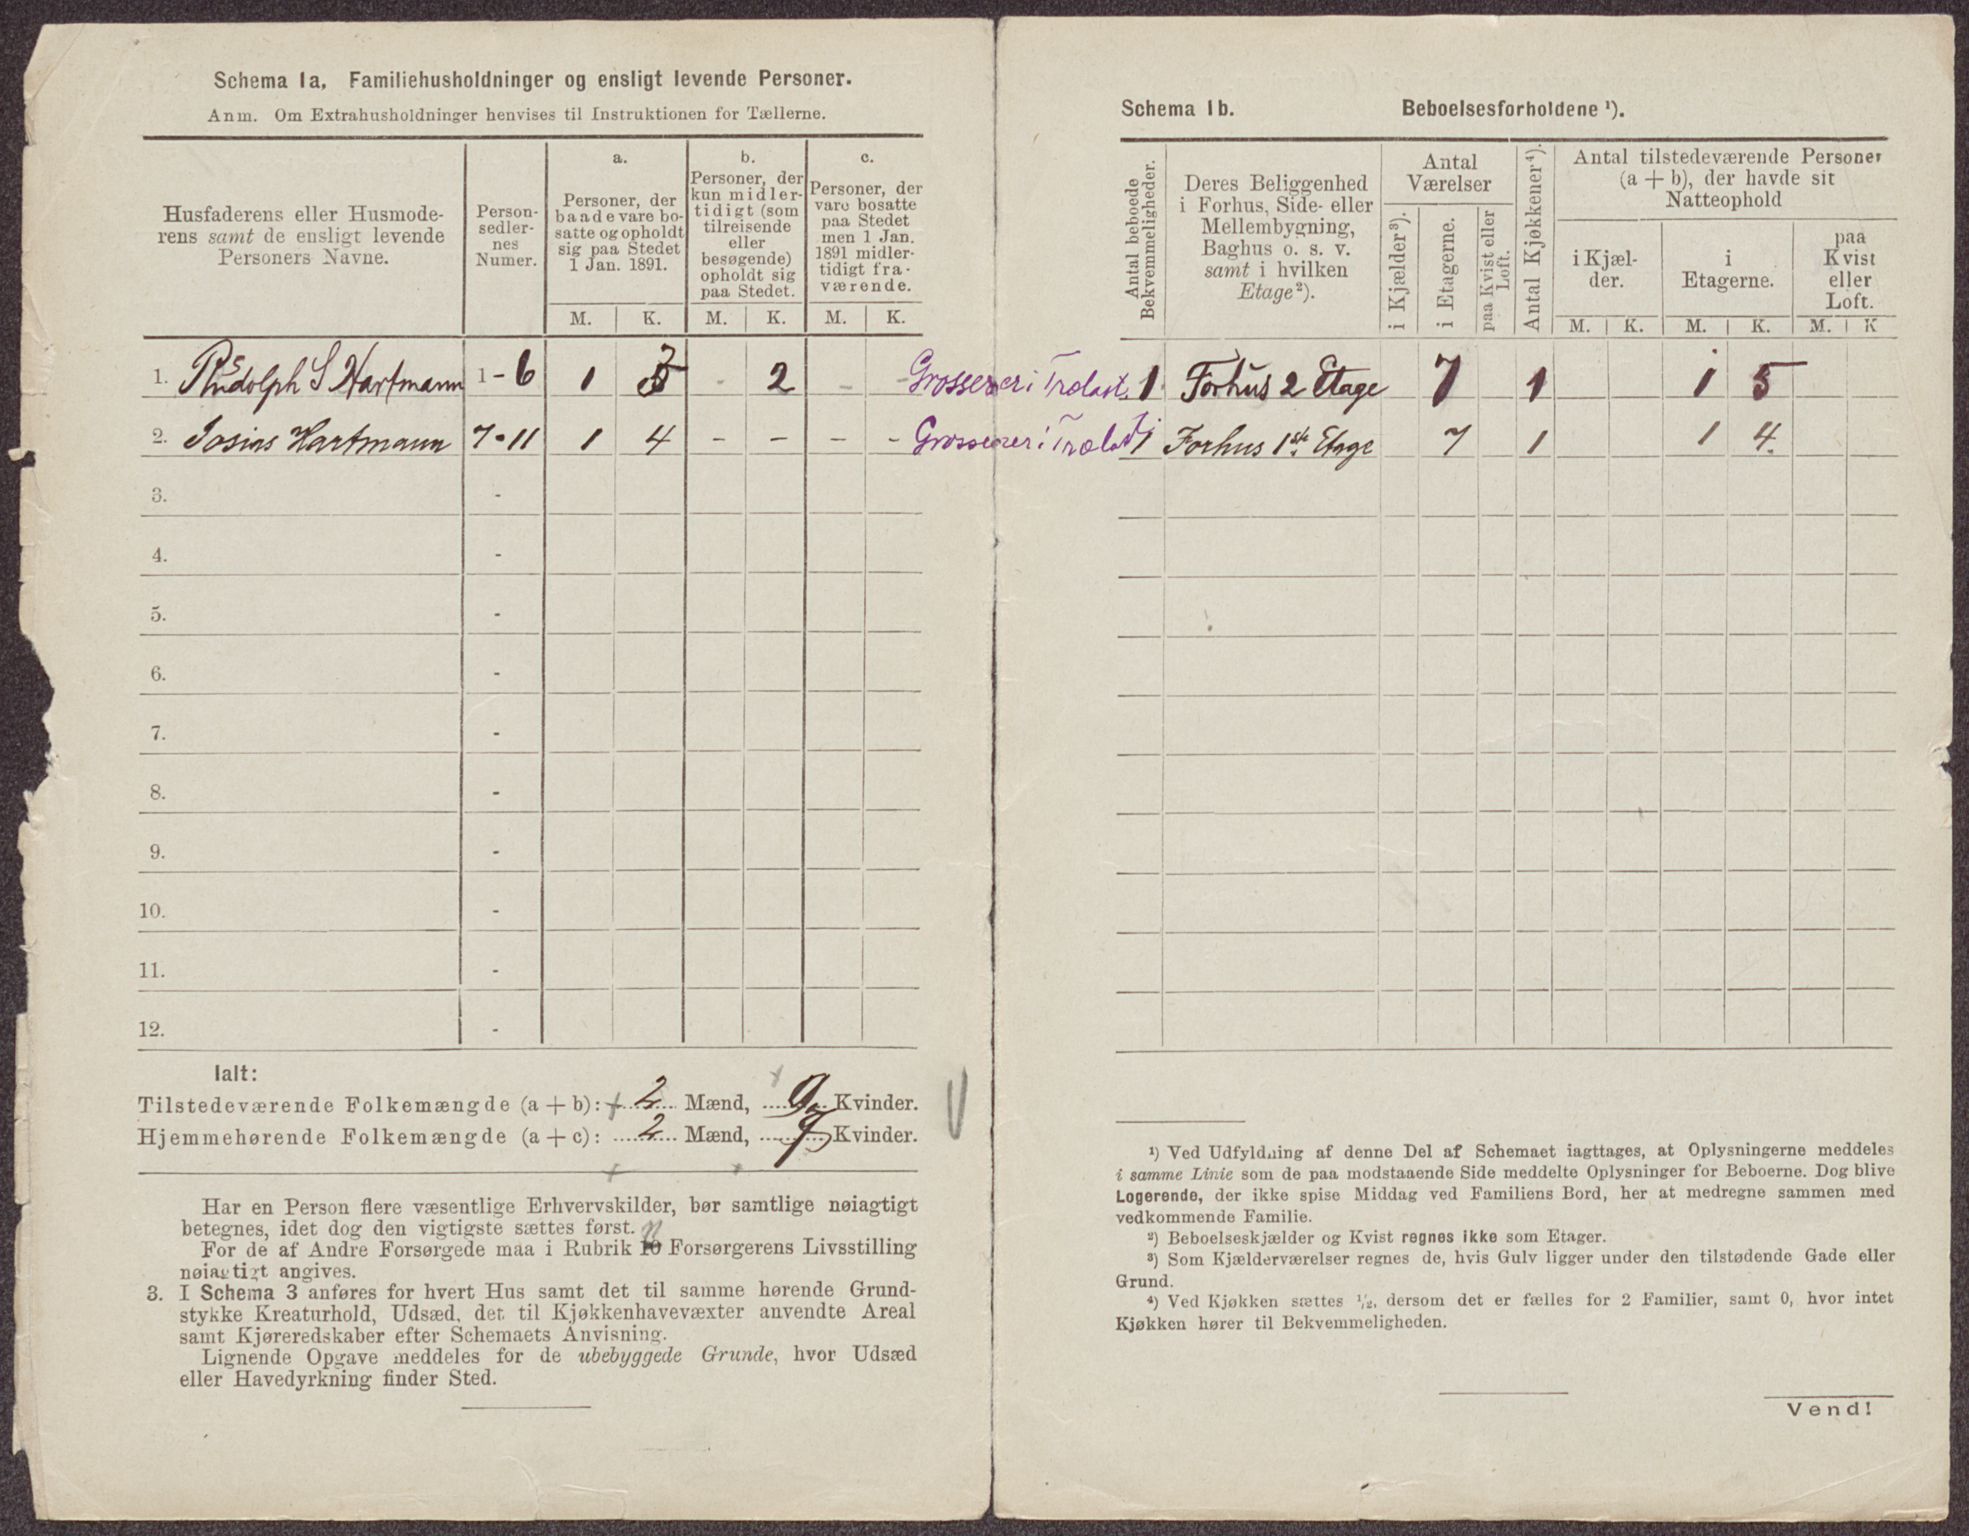 Schema 1a, Familiehusholdninger og ensligt levende Personer.
Anm. Om Extrahusholdninger henvises til Instruktionen for Tællerne.
Husfaderens eller Husmode-
rens samt de ensligt levende
Personers Navne.
Person-
sedler-
nes
Numer.
a.
Personer, der
baade vare bo-
satte og opholdt
sig paa Stedet
1 Jan. 1891.
b.
Personer, der
kun midler-
tidigt (som
tilreisende
eller
besøgende)
opholdt sig
paa Stedet.
c.
Personer, der
vare bosatte
paa Stedet
men 1 Jan.
1891 midler-
tidigt fra-
værende.
M. K. M. K. M. K.
1. Rudolph S Hartmann 1 - 6 1 - 2 - - Grosserer i Trælast.
2. Josias Hartmann 7 - 11 1 4 - - - - Grosserer i Trælast
3. -
4. -
5. -
6. -
7. -
8. -
9. -
10. -
11. -
12. -
Ialt:
Tilstedeværende Folkemængde (a + b): 2 Mænd, 9 Kvinder.
Hjemmehørende Folkemængde (a + c): 2 Mænd, Kvinder.
Har en Person flere væsentlige Erhvervskilder, bør samtlige nøiagtigt
betegnes, idet dog den vigtigste sættes først.
For de af Andre Forsørgede maa i Rubrik 10 Forsørgerens Livsstilling
nøiagtigt angives.
3. I Schema 3 anføres for hvert Hus samt det til samme hørende Grund-
stykke Kreaturhold, Udsæd, det til Kjøkkenhavevæxter anvendte Areal
samt Kjøreredskaber efter Schemaets Anvisning.
Lignende Opgave meddeles for de ubebyggede Grunde, hvor Udsæd
eller Havedyrkning finder Sted.
Schema 1b. Beboelsesforholdene ¹).
Antal beboede
Bekvemmeligheder.
Deres Beliggenhed
i Forhus, Side- eller
Mellembygning,
Baghus o. s. v.
samt i hvilken
Etage ²).
Antal
Værelser
i Kjælder ³).
i Etagerne.
paa Kvist eller
Loft.
Antal Kjøkkener ⁴).
Antal tilstedeværende Personer
(a + b), der havde sit
Natteophold
i Kjæl-
der.
i
Etagerne.
paa
Kvist
eller
Loft.
M. K. M. K. M. K
1 Forhus 2 Etage 7 1 1 5
1 Forhus 1ste Etage 7 1 1 4.
¹) Ved Udfyldning af denne Del af Schemaet iagttages, at Oplysningerne meddeles
i samme Linie som de paa modstaaende Side meddelte Oplysninger for Beboerne. Dog blive
Logerende, der ikke spise Middag ved Familiens Bord, her at medregne sammen med
vedkommende Familie.
²) Beboelseskjælder og Kvist regnes ikke som Etager.
³) Som Kjælderværelser regnes de, hvis Gulv ligger under den tilstødende Gade eller
Grund.
⁴) Ved Kjøkken sættes ½, dersom det er fælles for 2 Familier, samt 0, hvor intet
Kjøkken hører til Bekvemmeligheden.
Vend!